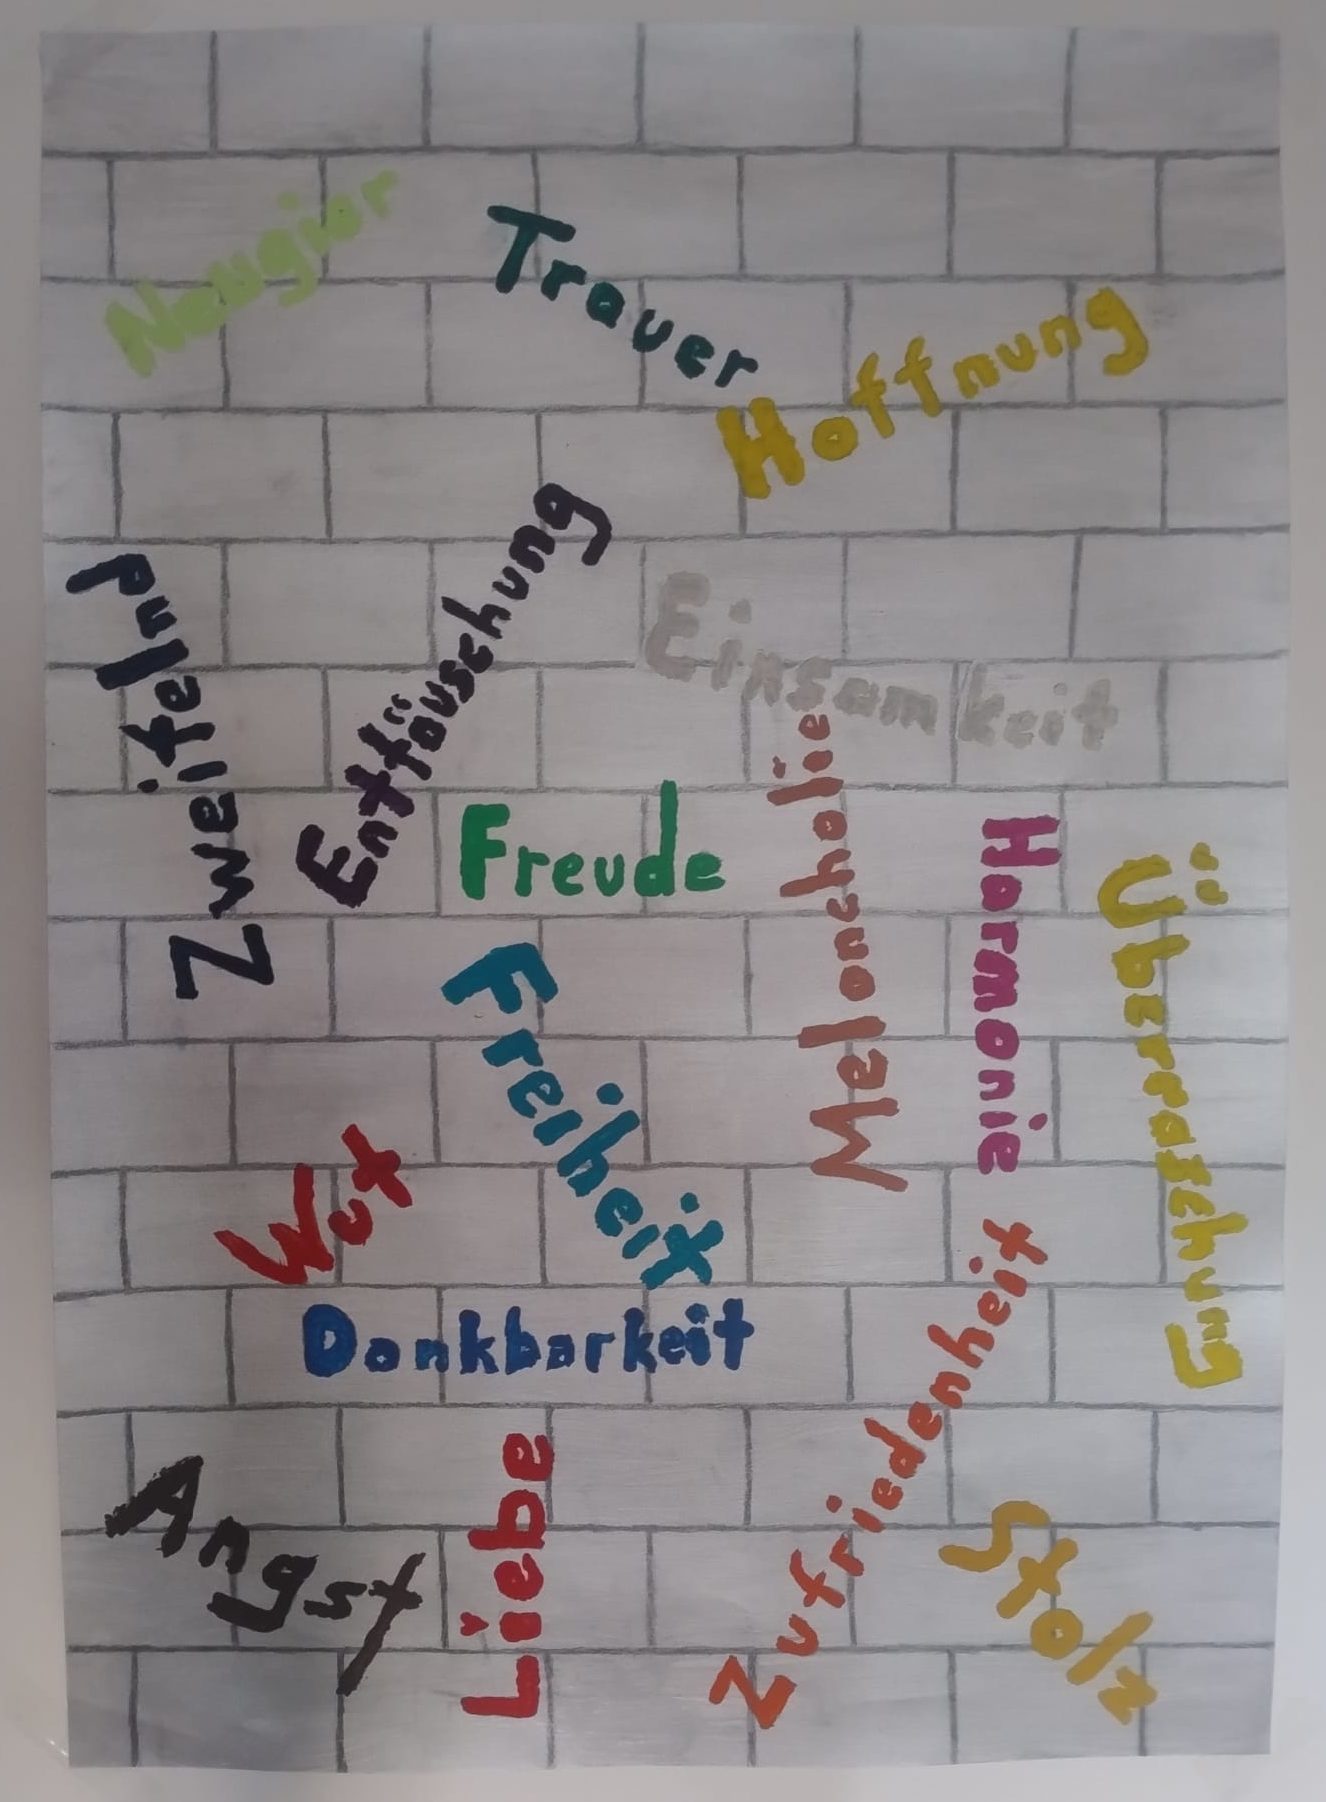 Neugier
Trauer
Hoffnung
Zweifelnd
Enttäuschung
Einsamkeit
Freude
Melancholie
Harmonie
Überraschung
Freiheit
Wut
Dankbarkeit
Zufriedenheit
Angst
Liebe
Stolz